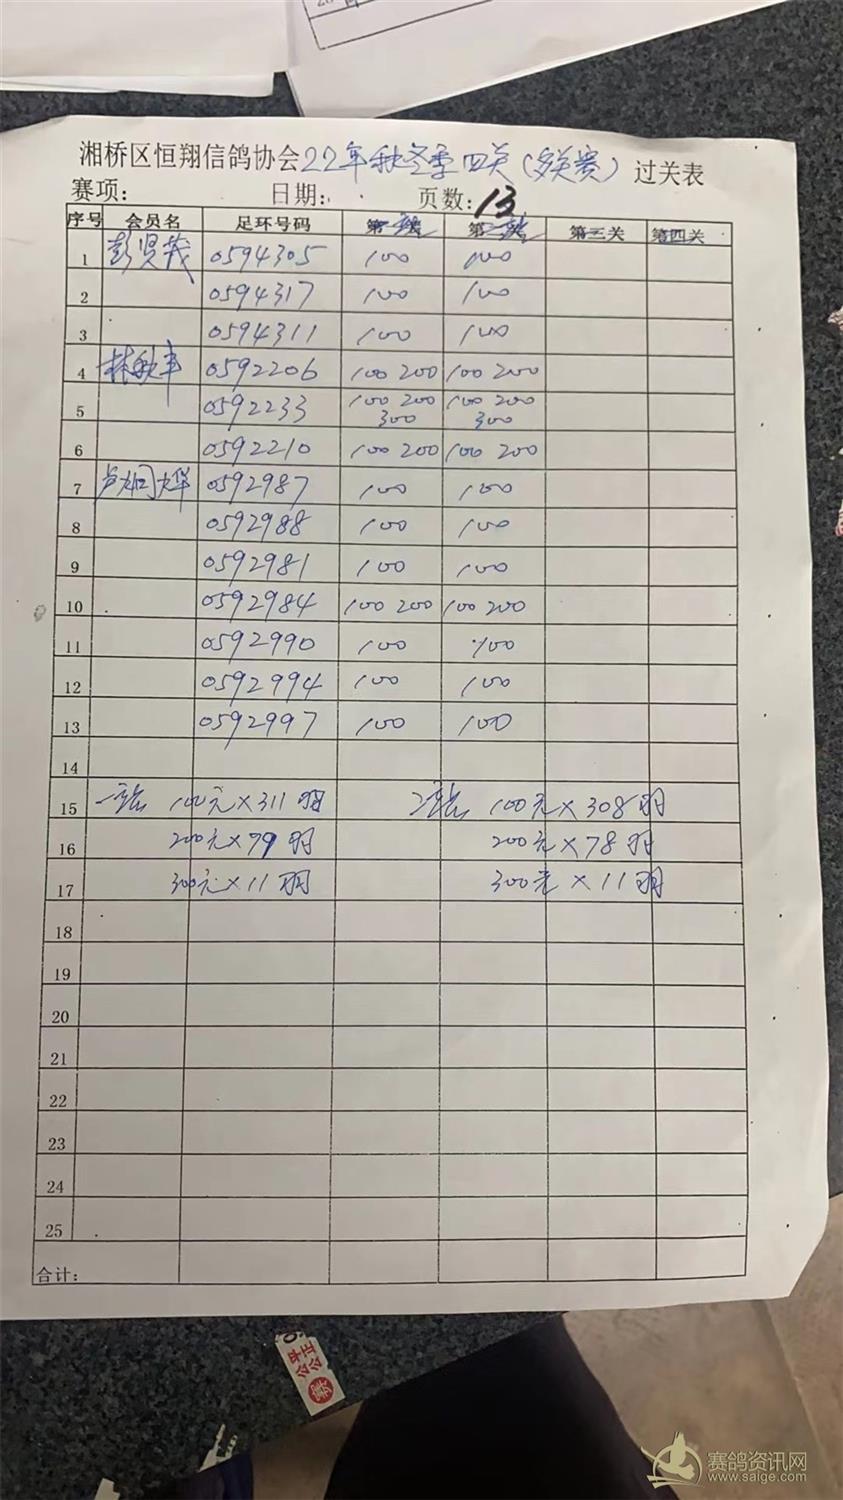 湘桥区恒翔信鸽协会22年秋冬季四关(多关赛)过关表
赛项: 日期: 页数: 13
序号 会员名 足环号码 第一站 第二站 第三关 第四关
1 彭贤茂 0594305 100 100
2 0594317 100 100
3 0594311 100 100
4 林敏丰 0592206 100 200 100 200
5 0592233 100 200 300 100 200 300
6 0592210 100 200 100 200
7 0592987 100 100
8 0592988 100 100
9 0592981 100 100
10 0592984 100 200 100 200
11 0592990 100 100
12 0592994 100 100
13 0592997 100 100
14
15 一站 100元×311羽 2站 100元×308羽
16 200元×79羽 200元×78羽
17 300元×11羽 300元×11羽
18
19
20
21
22
23
24
25
合计:
公平
公正
赛鸽资讯网
www.saige.com